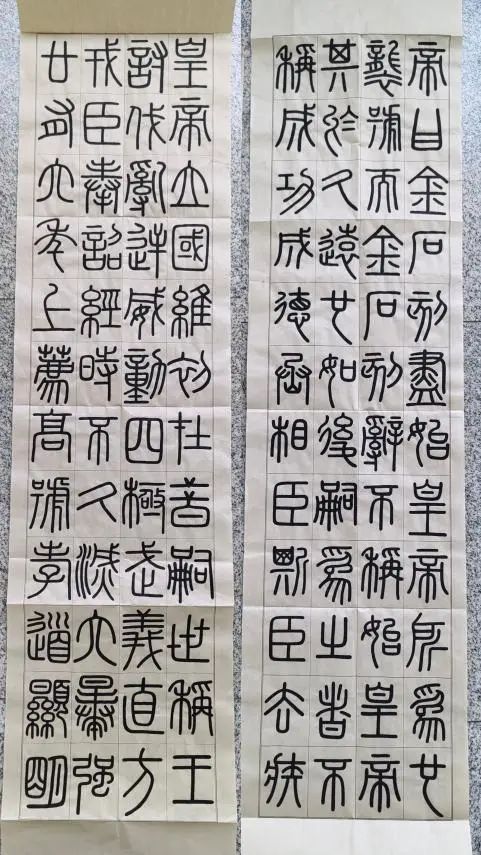 皇帝立國維初在昔嗣世稱王
討伐亂逆威動四極武義直方
戎臣奉詔經時不久滅六暴強
廿有六年上薦高號孝道顯明
帝曰金石刻盡始皇帝所爲也
襲號而金石刻辭不稱始皇帝
其於久遠也如後嗣爲之者不
稱成功成德丞相臣斯臣去疾